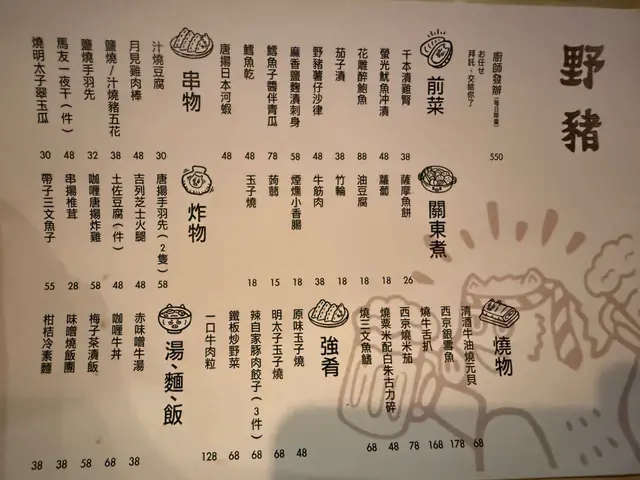 野豬
廚師發辦(每日限量)
お任せ
拜託，交給你了
550
前菜
千本漬雞腎 38
螢光魷魚沖漬 48
花雕醉鮑魚 88
茄子漬 38
野豬薯仔沙律 48
麻香鹽麴漬刺身 58
鱈魚子醬伴青瓜 78
鱈魚乾 48
唐揚日本河蝦 48
串物
汁燒豆腐 30
月見雞肉棒 48
鹽燒/汁燒豬五花 38
鹽燒手羽先 32
馬友一夜干(件) 48
燒明太子翠玉瓜 30
關東煮
薩摩魚餅 26
蘿蔔 18
油豆腐 18
竹輪 18
牛筋肉 38
煙燻小香腸 18
蒟蒻 15
玉子燒 18
炸物
唐揚手羽先(2隻) 58
吉列芝士火腿 48
土佐豆腐(件) 48
咖喱唐揚炸雞 58
串揚椎茸 28
帶子三文魚子 55
燒物
清酒牛油燒元貝 68
西京銀鱈魚 178
燒牛舌扒 168
西京燒米茄 78
燒粟米配白朱古力碎 48
燒三文魚鰭 68
強肴
原味玉子燒 48
明太子玉子燒 68
辣自家豚肉餃子(3件) 68
鐵板炒野菜 68
一口牛肉粒 128
湯、麵、飯
赤味噌牛湯 38
咖喱牛丼 68
梅子茶漬飯 58
味噌燒飯團 38
柑桔冷素麵 38